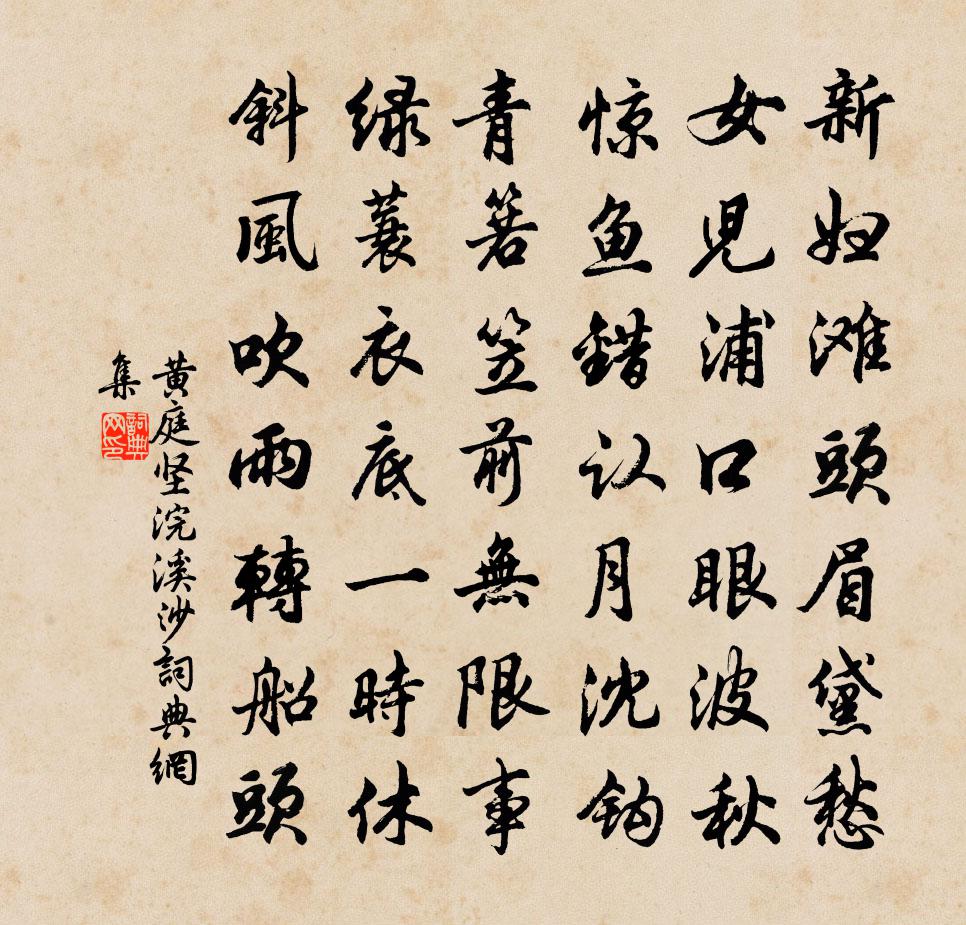 新妇滩頭眉黛愁
女児浦口眼波秋
惊鱼錯认月沈钩
青箬笠前無限事
绿蓑衣底一時休
斜風吹雨轉船頭
黄庭坚浣溪沙詞典網
集
詞典网印